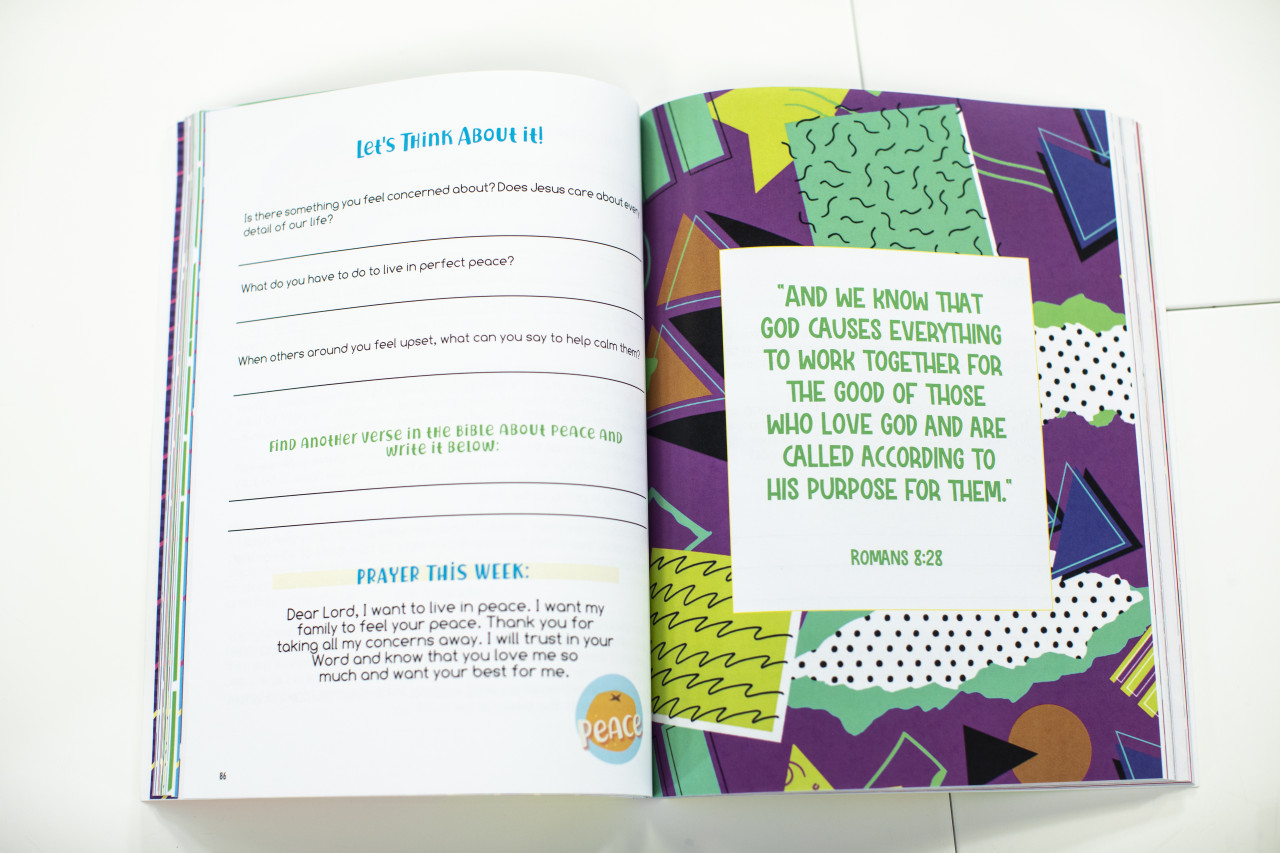 Let's Think About it!
Is there something you feel concerned about? Does Jesus care about every
detail of our life?
What do you have to do to live in perfect peace?
When others around you feel upset, what can you say to help calm them?
Find another verse in the Bible about peace and
write it below:
PRAYER THIS WEEK:
Dear Lord, I want to live in peace. I want my
family to feel your peace. Thank you for
taking all my concerns away. I will trust in your
Word and know that you love me so
much and want your best for me.
PEACE
86
"AND WE KNOW THAT
GOD CAUSES EVERYTHING
TO WORK TOGETHER FOR
THE GOOD OF THOSE
WHO LOVE GOD AND ARE
CALLED ACCORDING TO
HIS PURPOSE FOR THEM."
ROMANS 8:28